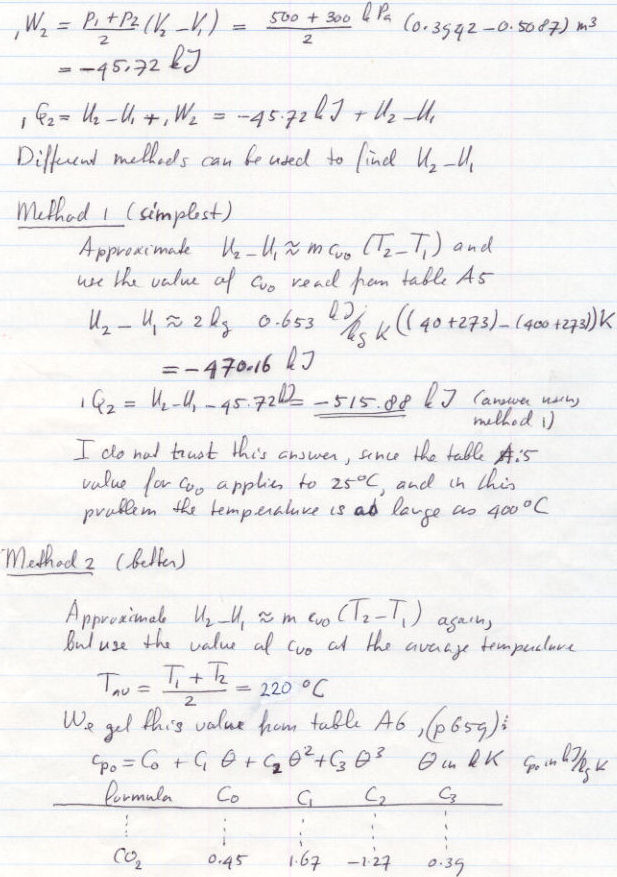 ₁W₂ = (P₁ + P₂)/2 (V₂ − V₁) = (500 + 300)/2 kPa (0.3942 − 0.5087) m³
= −45.72 kJ
₁Q₂ = U₂ − U₁ + ₁W₂ = −45.72 kJ + U₂ − U₁
Different methods can be used to find U₂ − U₁
Method 1 (simplest)
Approximate U₂ − U₁ ≈ m cv₀ (T₂ − T₁) and
use the value of cv₀ read from table A5
U₂ − U₁ ≈ 2 kg 0.653 kJ/kg K ((40 + 273) − (400 + 273)) K
= −470.16 kJ
₁Q₂ = U₂ − U₁ − 45.72 kJ = −515.88 kJ (answer using
method 1)
I do not trust this answer, since the table A.5
value for cv₀ applies to 25°C, and in this
problem the temperature is as large as 400°C
Method 2 (better)
Approximate U₂ − U₁ ≈ m cv₀ (T₂ − T₁) again,
but use the value of cv₀ at the average temperature
Tav = (T₁ + T₂)/2 = 220 °C
We get this value from table A6, (p 659):
cp₀ = C₀ + C₁ θ + C₂ θ² + C₃ θ³ θ in k K cp₀ in kJ/kg K
Formula C₀ C₁ C₂ C₃
CO₂ 0.45 1.67 −1.27 0.39